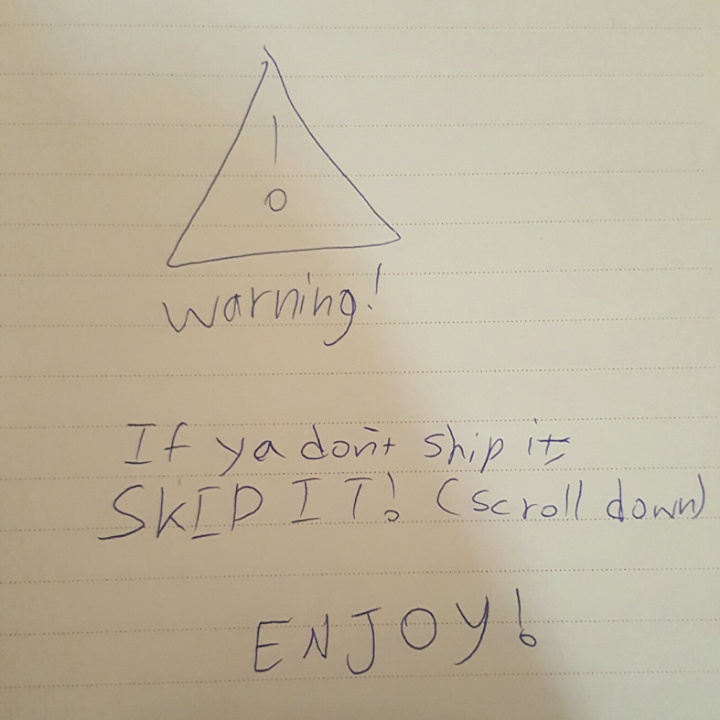 !
Warning!
If ya don't ship it,
SKIP IT! (scroll down)
ENJOY!